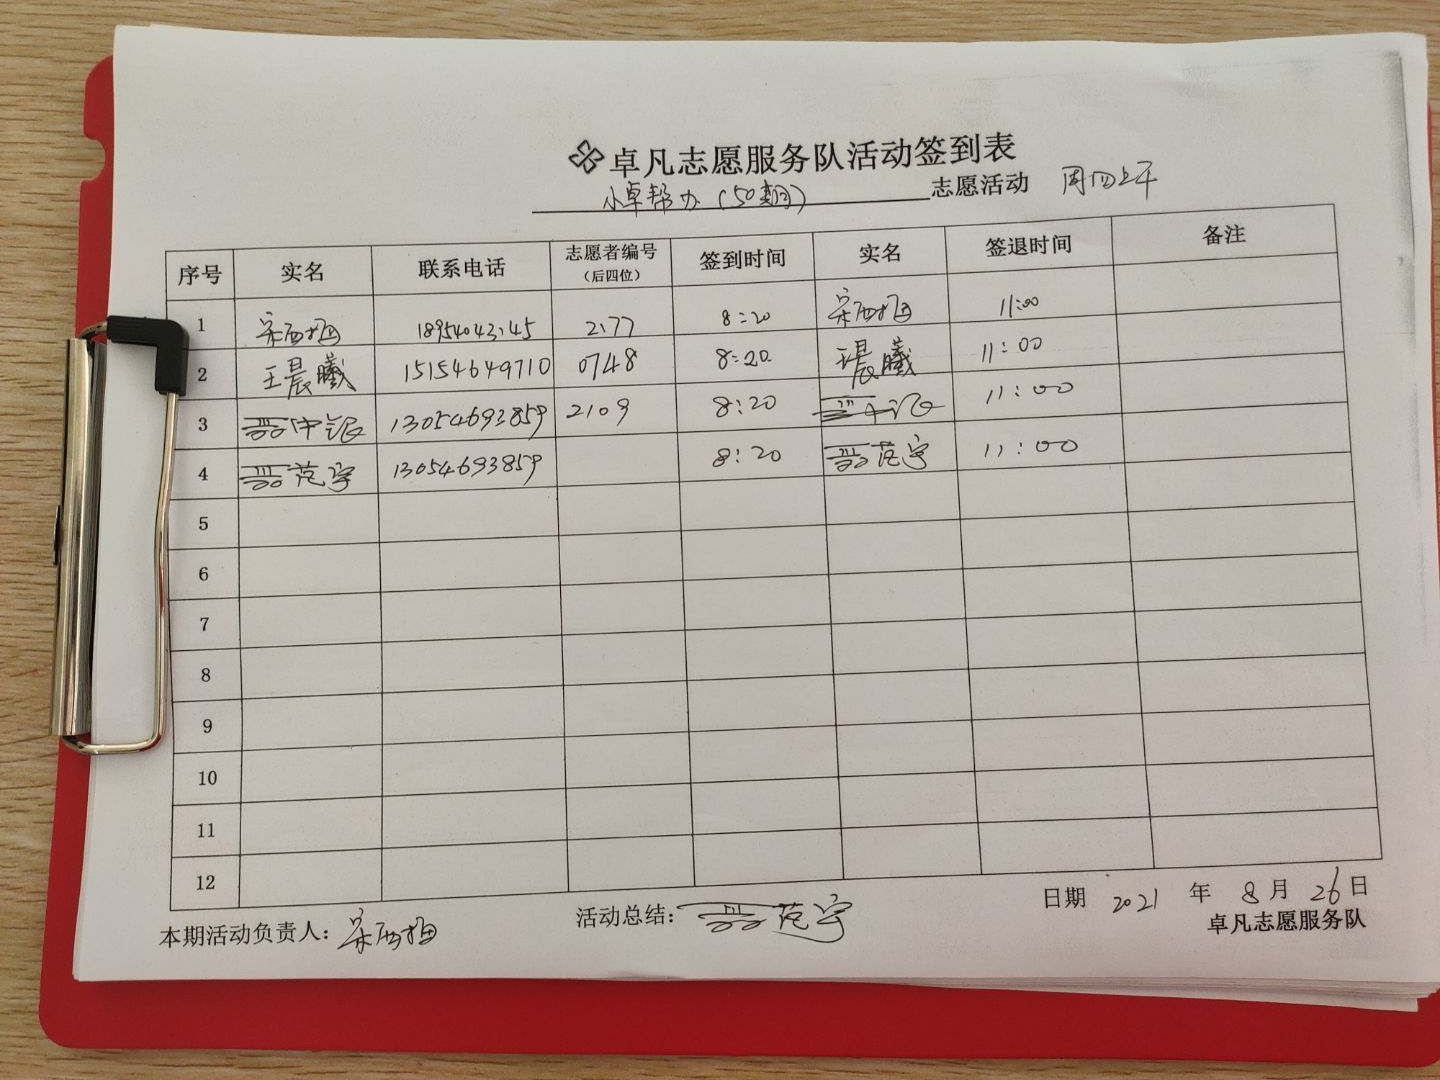 卓凡志愿服务队活动签到表
小卓帮办(50期) 志愿活动 周四上午
序号 实名 联系电话 志愿者编号(后四位) 签到时间 实名 签退时间 备注
1 18954043145 2177 8:20 11:00
2 王晨曦 15154649710 0748 8:20 王晨曦 11:00
3 13054693859 2109 8:20 11:00
4 范宇 13054693859 8:20 范宇 11:00
5
6
7
8
9
10
11
12
本期活动负责人: 活动总结: 范宇 日期 2021 年 8 月 26 日
卓凡志愿服务队